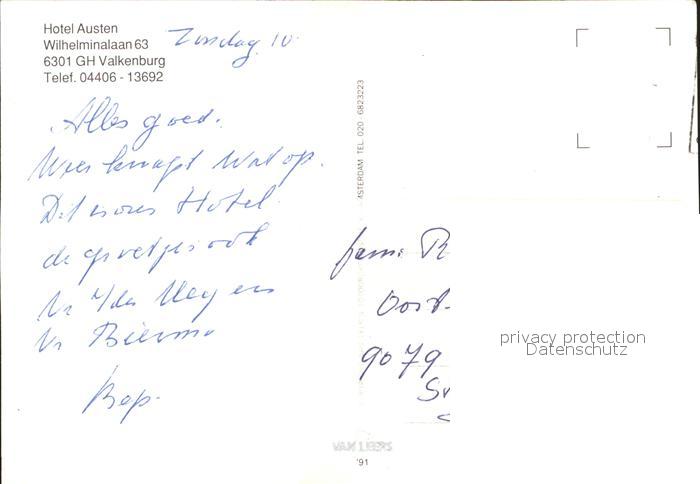 Hotel Austen
Wilhelminalaan 63
6301 GH Valkenburg
Telef. 04406 - 13692
Zondag 10
Alles goed.
Weer knapt wat op.
Dit is ons Hotel
de groetjes ook
v/der Meg en
Bierma
Bep.
MSTERDAM TEL 020 6823223
fam: R
Oost-
9079
privacy protection
Datenschutz
VAN LEERS
'91